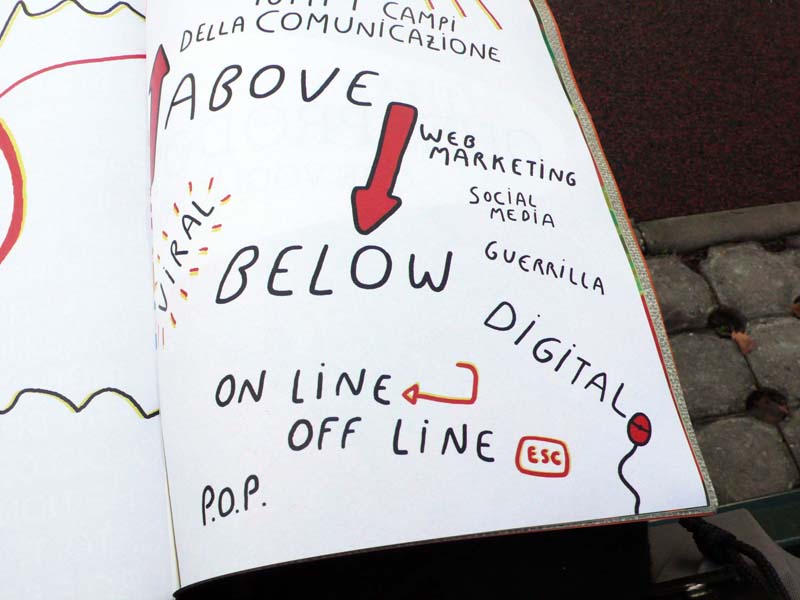 TUTTI I CAMPI
DELLA COMUNICAZIONE
ABOVE
WEB
MARKETING
SOCIAL
MEDIA
VIRAL
BELOW
GUERRILLA
DIGITAL
ON LINE
OFF LINE
ESC
P.O.P.